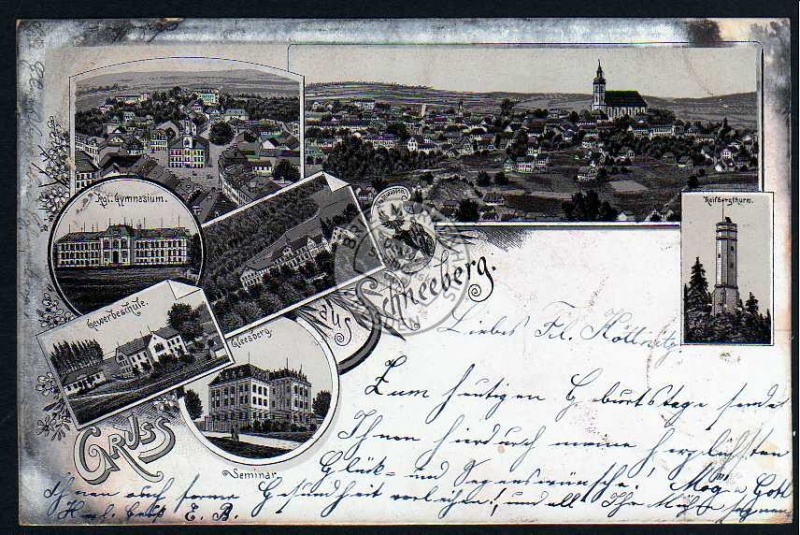 Kgl. Gymnasium.
Gewerbeschule.
Gleesberg.
Seminar.
Keilbergthurm.
Gruss
aus Schneeberg.
Liebes Frl. Köllnitz,
Zum heutigen Geburtstage sende
Ihnen hierdurch meine herzlichsten
Glück- und Segenswünsche! Möge Gott
Ihnen auch ferne Gesundheit verleihen! und all Ihr Mühe segnen
E. B.